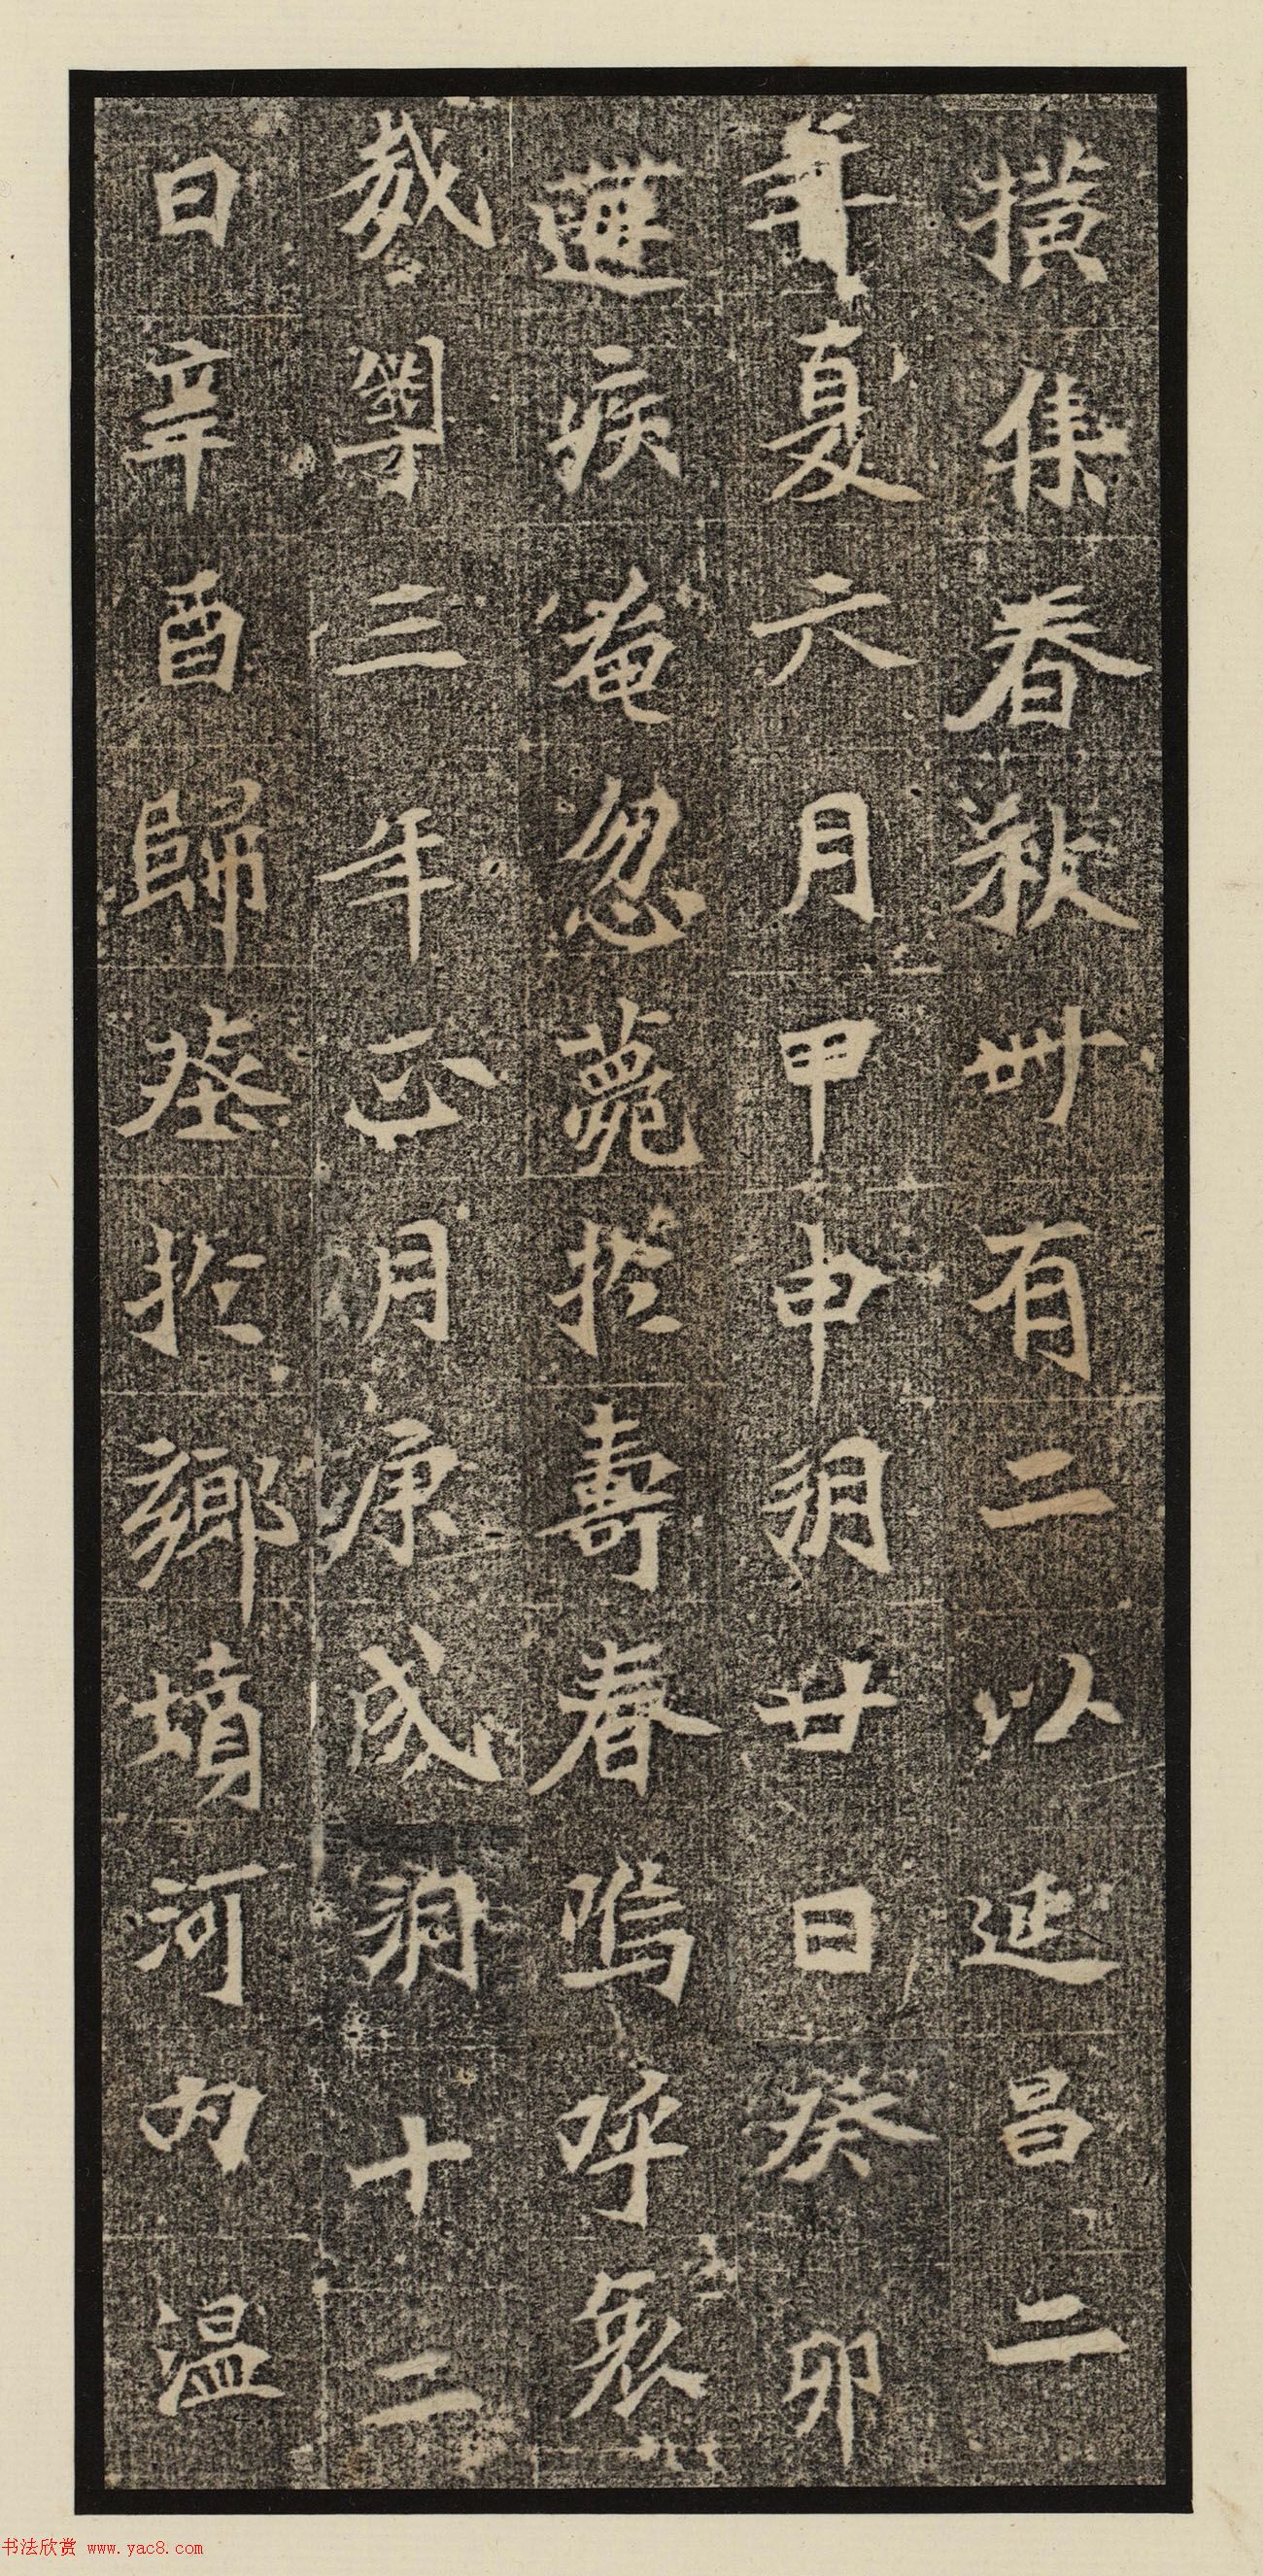 横集春秋卅有二以延昌二
年夏六月甲申朔廿日癸卯
遘疾奄忽薨於壽春嗚呼哀
哉粤三年正月庚戌朔十二
日辛酉歸葬於鄉墳河内温
书法欣赏 www.yac8.com